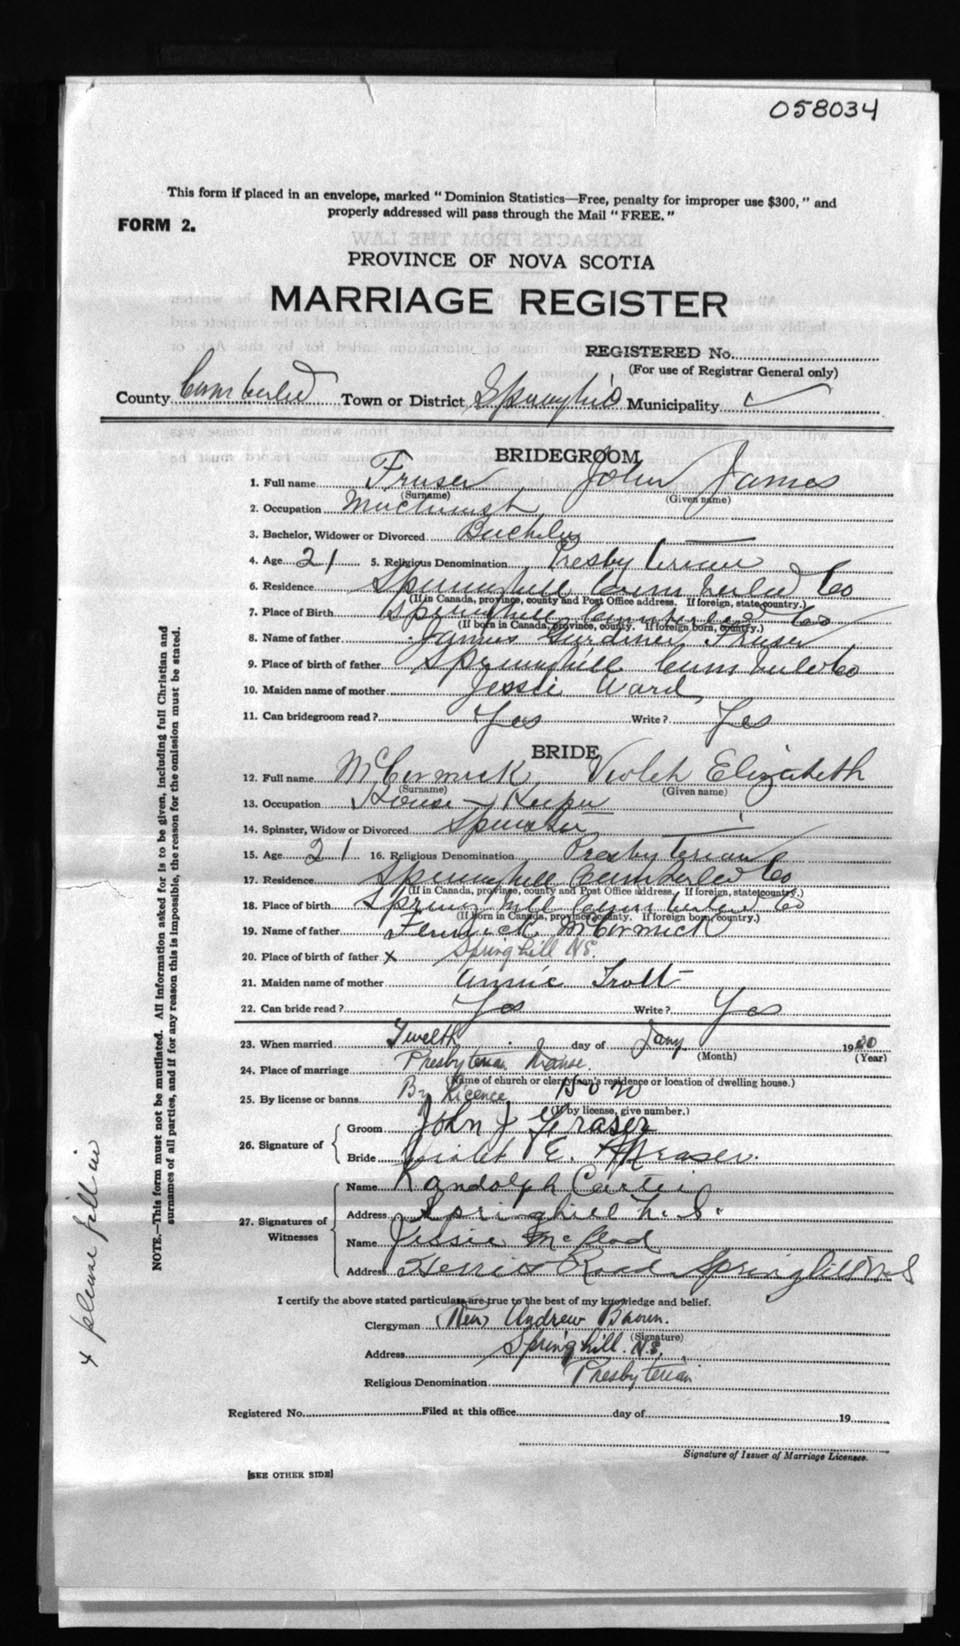 058034
This form if placed in an envelope, marked "Dominion Statistics—Free, penalty for improper use $300," and
properly addressed will pass through the Mail "FREE."
FORM 2.
PROVINCE OF NOVA SCOTIA
MARRIAGE REGISTER
REGISTERED No.
(For use of Registrar General only)
County Town or District Springhill Municipality
BRIDEGROOM
1. Full name Fraser John James
(Surname) (Given name)
2. Occupation Machinist
3. Bachelor, Widower or Divorced Bachelor
4. Age 21 5. Religious Denomination Presbyterian
6. Residence Springhill Cumberland Co
(If in Canada, province, county and Post Office address. If foreign, state country.)
7. Place of Birth Springhill Cumberland Co
(If born in Canada, province, county. If foreign born, country.)
8. Name of father James Gardiner Fraser
9. Place of birth of father Springhill Cumberland Co
10. Maiden name of mother Jessie Ward
11. Can bridegroom read? Yes Write? Yes
BRIDE
12. Full name McCormick Violet Elizabeth
(Surname) (Given name)
13. Occupation House-Keeper
14. Spinster, Widow or Divorced Spinster
15. Age 21 16. Religious Denomination Presbyterian
17. Residence Springhill Cumberland Co
(If in Canada, province, county and Post Office address, If foreign, state country.)
18. Place of birth Spring hill Cumberland Co
(If born in Canada, province county. If foreign born, country.)
19. Name of father Fenwick McCormick
20. Place of birth of father x Spring hill NS.
21. Maiden name of mother Annie Trott
22. Can bride read? Yes Write? Yes
23. When married Twelth day of Jany 1920
(Month) (Year)
24. Place of marriage Presbyterian Manse
(Name of church or clergyman's residence or location of dwelling house.)
25. By license or banns By Licence
(If by license, give number.)
26. Signature of
Groom John J Fraser
Bride Violet E. Fraser.
27. Signatures of Witnesses
Name Randolph Carter
Address Springhill N.S.
Name Jessie McLeod
Address Road Springhill N S
I certify the above stated particulars are true to the best of my knowledge and belief.
Clergyman (Rev) Andrew Brown.
(Signature)
Address Spring hill. N.S.
Religious Denomination Presbyterian
Registered No. Filed at this office day of 19
Signature of Issuer of Marriage Licenses.
[SEE OTHER SIDE]
NOTE.—This form must not be mutilated. All information asked for is to be given, including full Christian and
surnames of all parties, and if for any reason this is impossible, the reason for the omission must be stated.
x please fill in